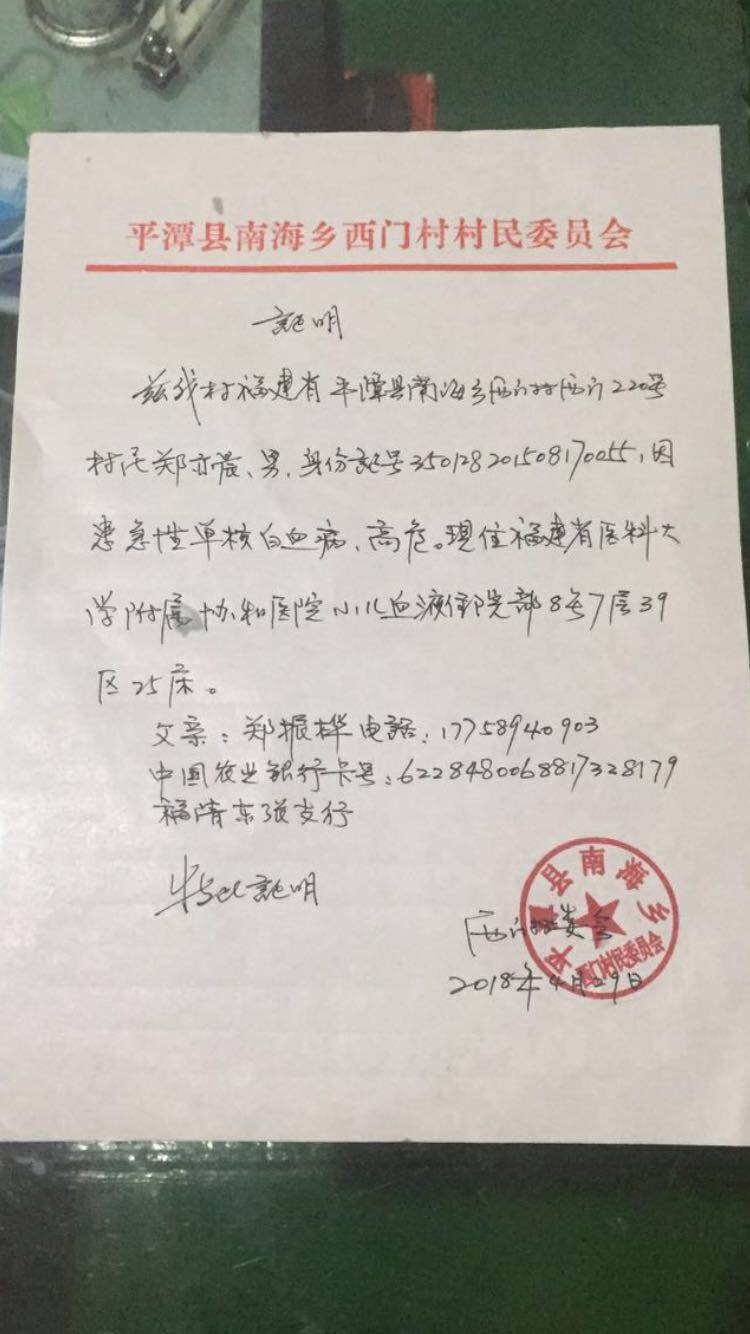 平潭县南海乡西门村村民委员会
証明
兹我村福建省平潭县南海乡西门村西门220号
村民郑亦晨、男、身份証号350128201508170055,因
患急性单核白血病、高危。现住福建省医科大
学附属协和医院小儿血液住院部8号7层39
区25床。
父亲:郑振桦电话:17758940903
中国农业银行卡号:6228480068817328179
福清东张支行
特此証明
西门村委会
2018年4月29日
平潭县南海乡
西门村民委员会